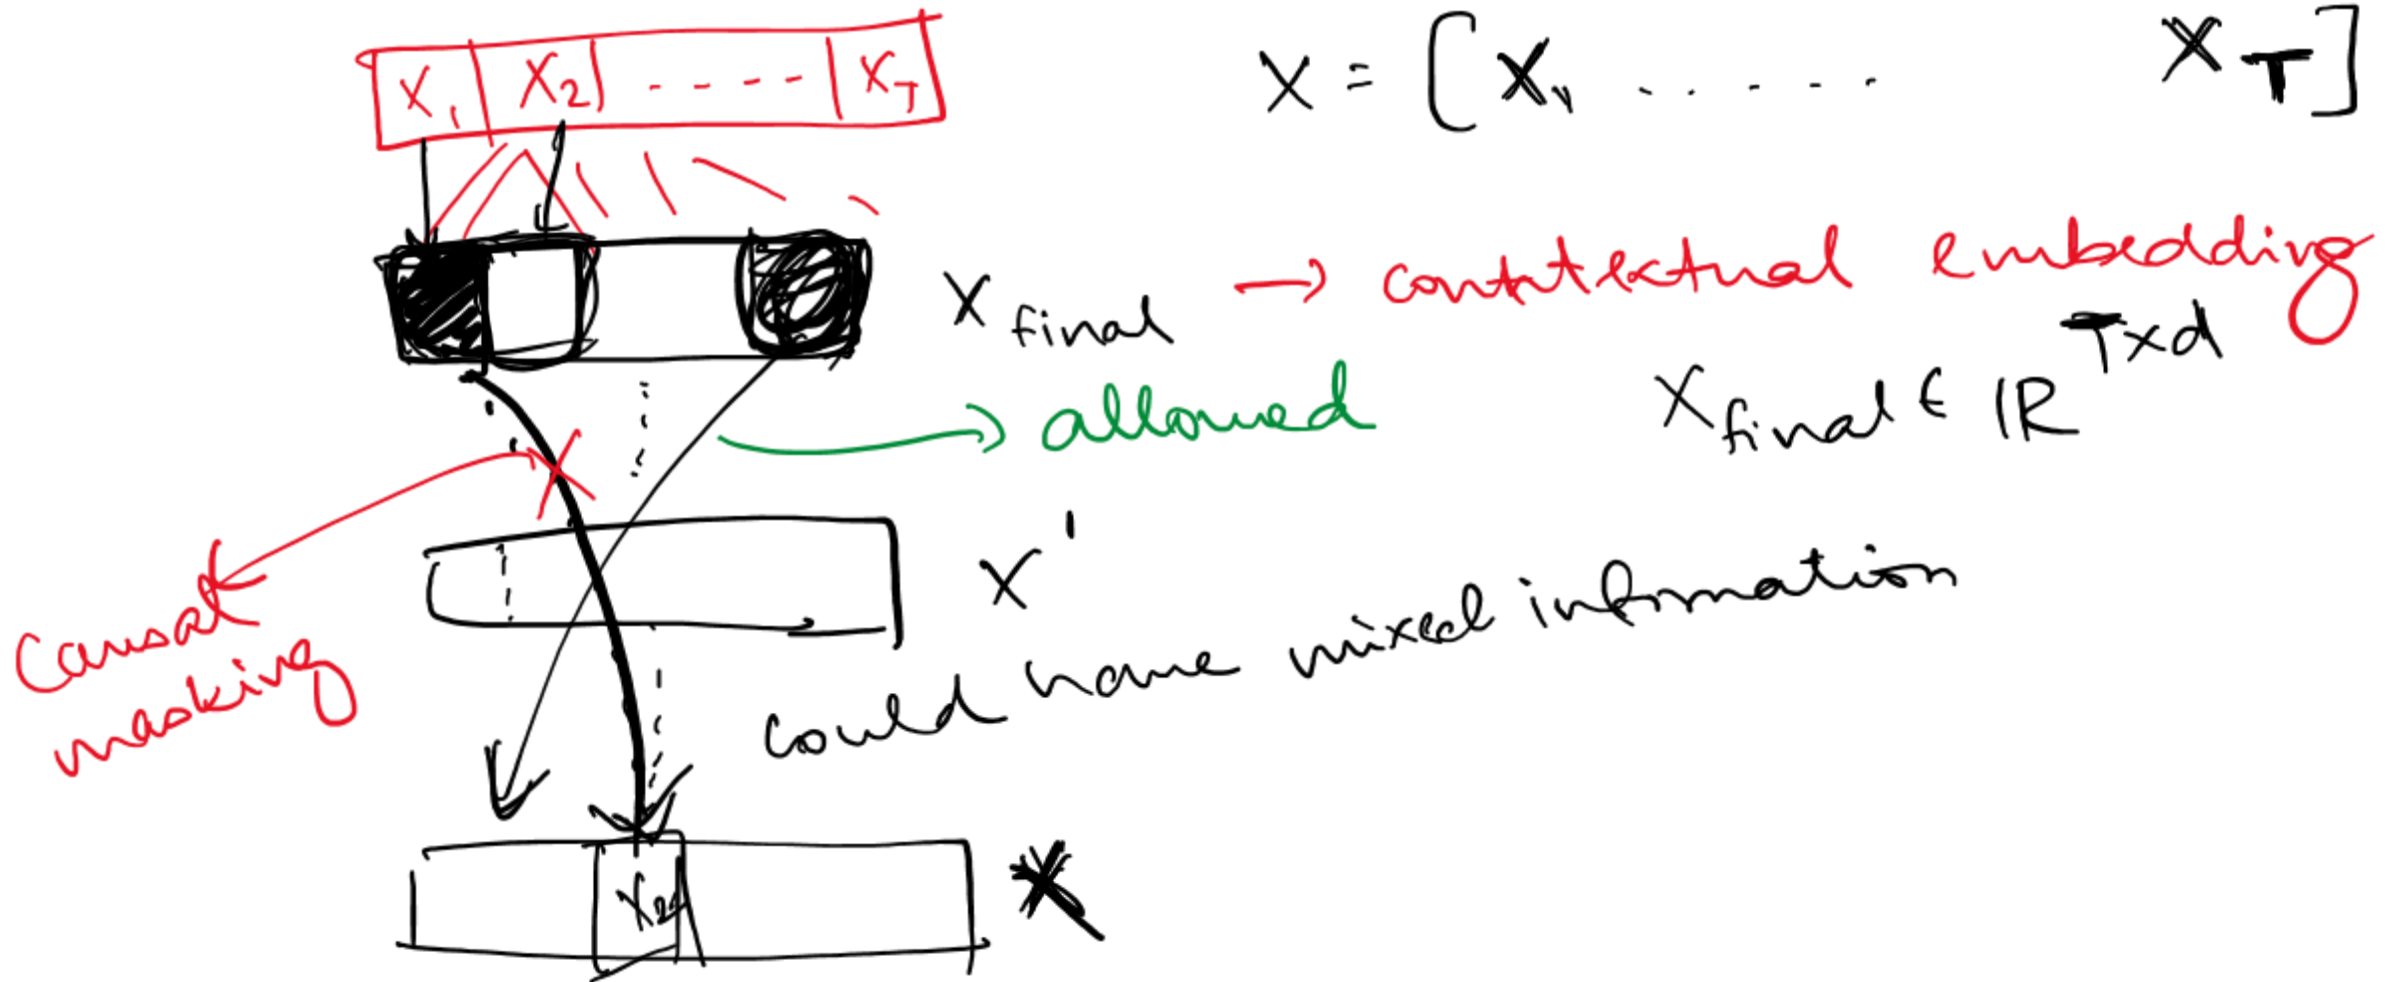 X₁ X₂ ----- X_T
X = [X₁, ..... X_T]
X_final → contextual embedding
X_final ∈ ℝ^{T×d}
→ allowed
X'
Causal masking
could have mixed information
X₂
X